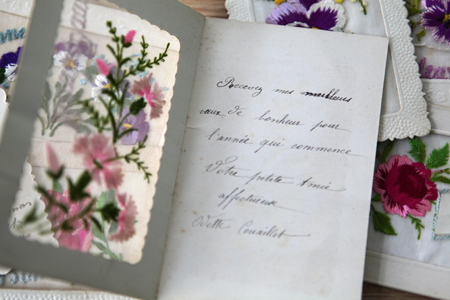 Recevez mes meilleurs
vœux de bonheur pour
l'année qui commence
Votre petite Amie
affectueuse
Odette